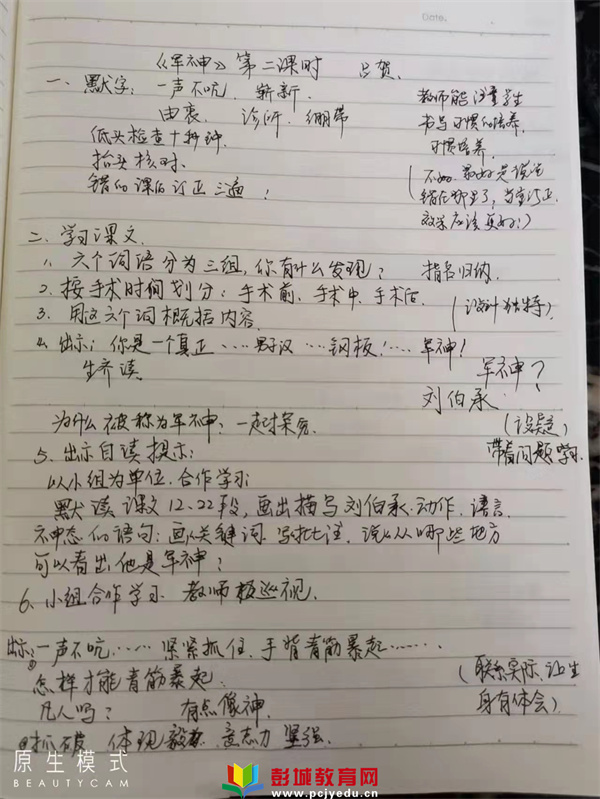 Date.
《军神》第二课时 吕贺.
一、默字: 一声不吭. 崭新. 教师能注重学生
由衷. 诊所. 绷带 书写习惯的培养.
低头检查十秒钟. 习惯培养.
抬头核对.
错的课后订正三遍! (不如. 最好是说说
错在哪里了, 当堂订正.
效果应该更好!)
二、学习课文.
1、六个词语分为三组, 你有什么发现? 指名归纳.
2、按手术时间划分: 手术前、手术中、手术后
3、用这六个词概括内容. (设计独特)
4、出示: 你是一个真正……男汉……钢板!…军神!
生齐读. 军神?
刘伯承
为什么被称为军神, 一起探究. (设疑)
5、出示自读提示: 带着问题学习.
以小组为单位. 合作学习:
默读课文12-22段, 画出描写刘伯承动作、语言、
神态的语句; 画关键词. 写批注. 说从哪些地方
可以看出他是军神?
6、小组合作学习. 教师巡视.
出示: 一声不吭……紧紧抓住. 手背青筋暴起……
①
怎样才能青筋暴起. (联系实际, 让生
凡人吗? 有点像神. 身有体会)
②抓破 体现毅力. 意志力坚强.
原生模式
BEAUTYCAM
彭城教育网
www.pcjyedu.cn